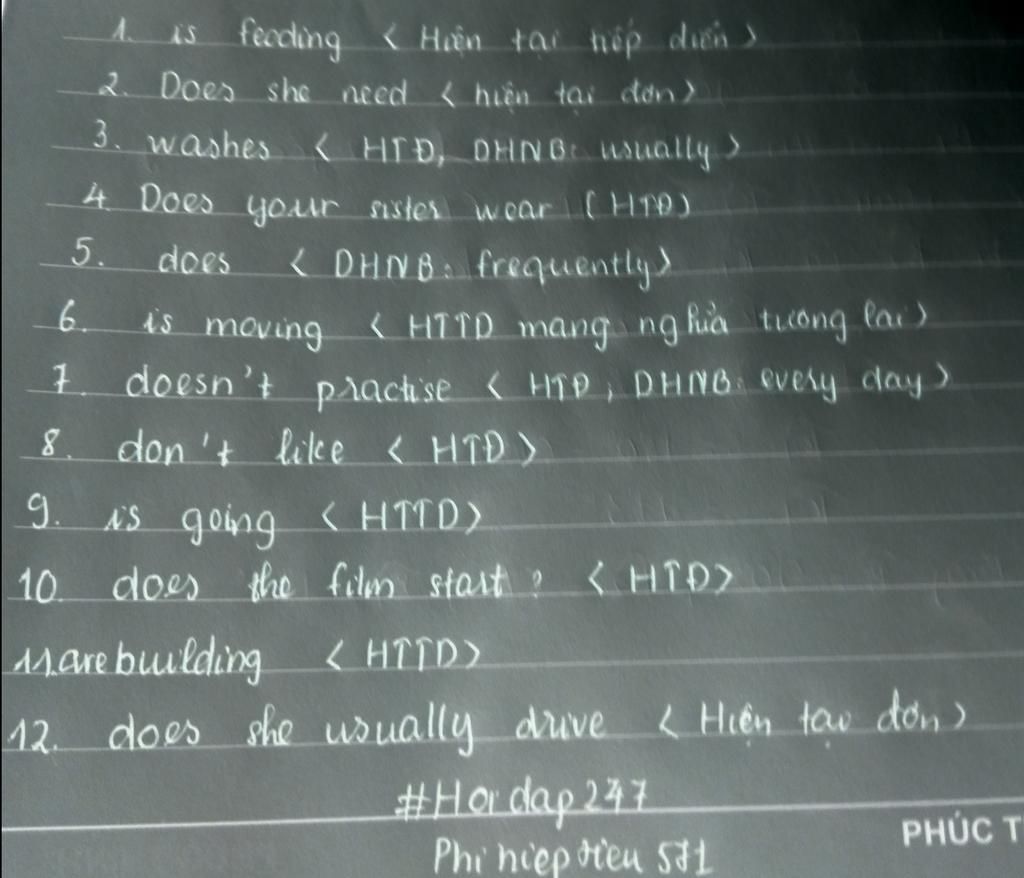 1. is feeding < Hiện tại tiếp diễn >
2. Does she need < hiện tại đơn >
3. washes < HTĐ, DHNB: usually >
4. Does your sister wear (HTĐ)
5. does < DHNB: frequently >
6. is moving < HTTD mang nghĩa tương lai >
7. doesn't practise < HTĐ, DHNB: every day >
8. don't like < HTĐ >
9. is going < HTTD >
10. does the film start? < HTĐ >
11. are building < HTTD >
12. does she usually drive < Hiện tại đơn >
#Hoidap247
PHÚC T
Phihiepdieu